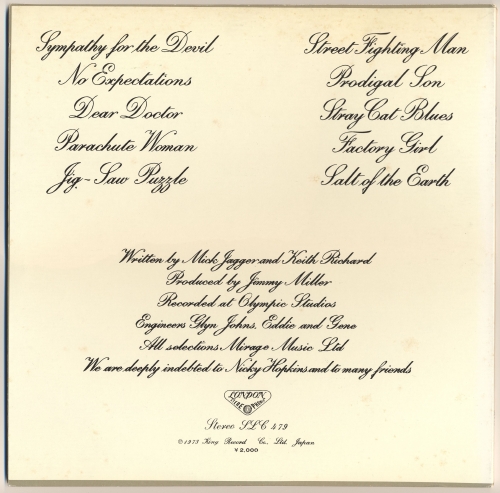 Sympathy for the Devil
No Expectations
Dear Doctor
Parachute Woman
Jig-Saw Puzzle
Street Fighting Man
Prodigal Son
Stray Cat Blues
Factory Girl
Salt of the Earth
Written by Mick Jagger and Keith Richard
Produced by Jimmy Miller
Recorded at Olympic Studios
Engineers Glyn Johns, Eddie and Gene
All selections Mirage Music Ltd
We are deeply indebted to Nicky Hopkins and to many friends
LONDON
Stereo SLC 479
©1973 King Record Co., Ltd. Japan
¥2,000